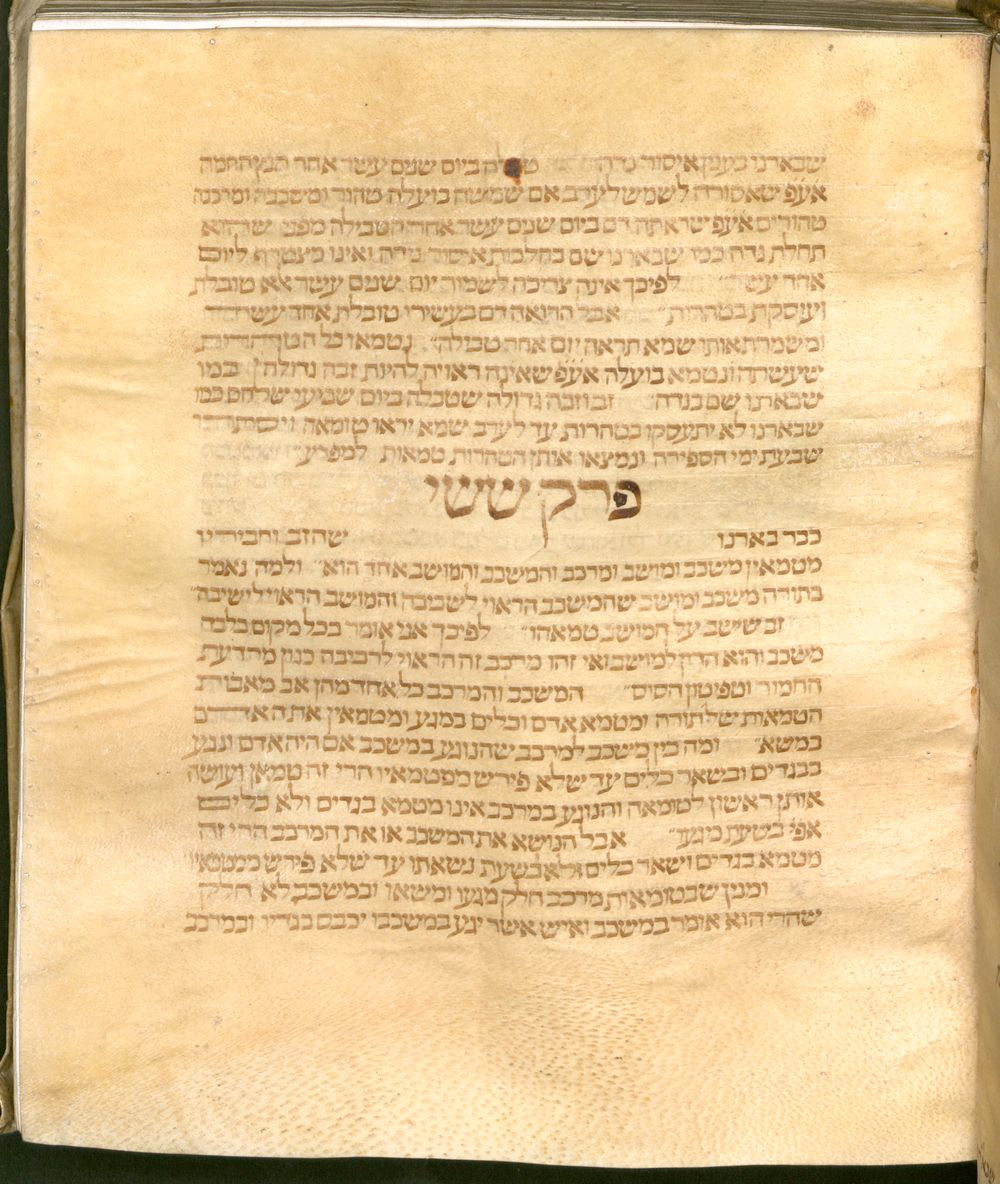 שבארנו בענין איסור נדה טבלה ביום שנים עשר אחר הנץ החמה
אע״פ שאסורה לשמש לערב אם שמשה בועלה טהור ומשכבה ומרכבה
טהורים אע״פ שראתה דם ביום שנים עשר אחר הטבילה מפני שהוא
תחלת נדה כמו שבארנו שם בהלכות איסור נידה ואינו מצטרף ליום
אחד עשר לפיכך אינה צריכה לשמור יום שנים עשר אלא טובלת
ועוסקת בטהרות״ אבל הרואה דם בעשירי טובלת אחד עשר
ומשמרת אותו שמא תראה יום אחד טבולה״ נטמאו כל הטהרות
שעשתה ונטמא בועלה אע״פ שאינה ראויה להיות זבה גדולה״ כמו
שבארנו שם בנדה״ זב וזבה גדולה שטבלה ביום שביעי שלהם כמו
שבארנו לא יתעסקו בטהרות עד לערב שמא יראו טומאה ויסתרו
שבעת ימי הספירה ונמצאו אותן הטהרות טמאות למפריע״
פרק ששי
כבר בארנו שהזב וחביריו
מטמאין משכב ומושב ומרכב והמשכב והמושב אחד הוא״ ולמה נאמר
בתורה משכב ומושב שהמשכב הראוי לשכיבה והמושב הראוי לישיבה״
זב שישב על המושב טמאהו״ לפיכך אני אומר בכל מקום בלבד
משכב והוא הדין למושב ואי זהו מרכב זה הראוי לרכיבה כגון מרדעת
החמור וטפיטון הסוס״ המשכב והמרכב כל אחד מהן אב מאבות
הטמאות של תורה ומטמא אדם וכלים במגע ומטמאין את האדם
במשא״ ומה בין משכב למרכב שהנוגע במשכב אם היה אדם ונגע
בבגדים ובשאר כלים עד שלא פירש מטמאיו הרי זה טמאן ועושה
אותן ראשון לטומאה והנוגע במרכב אינו מטמא בגדים ולא כלים
אפי׳ בשעת מגעו״ אבל הנושא את המשכב או את המרכב הרי זה
מטמא בגדים ושאר כלים בשעת נשאתו עד שלא פירש ממטמאיו
ומנין שבטומאות מרכב חלק מגעו ומשאו ובמשכב לא חלק
שהרי הוא אומר במשכב ואיש אשר יגע במשכבו יכבס בגדיו ובמרכב